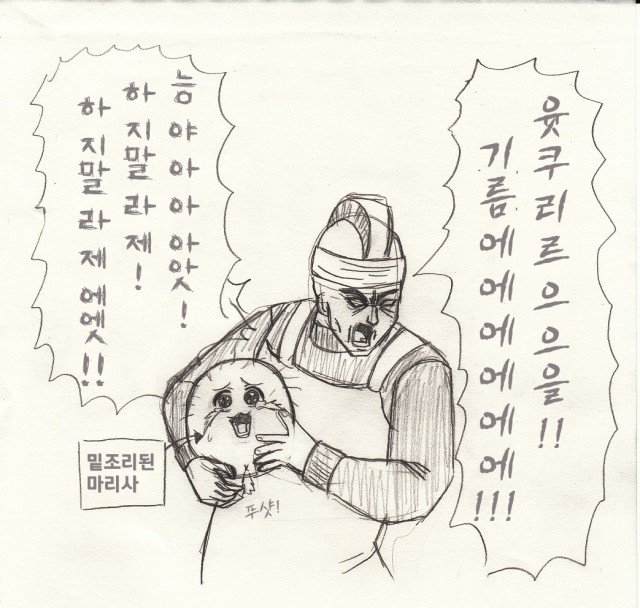 윳쿠리르으으을!!
기름에에에에에에!!!
능야아아아앗!
하지말라제!
하지말라제에엣!!
밑조리된
마리사
푸샷!